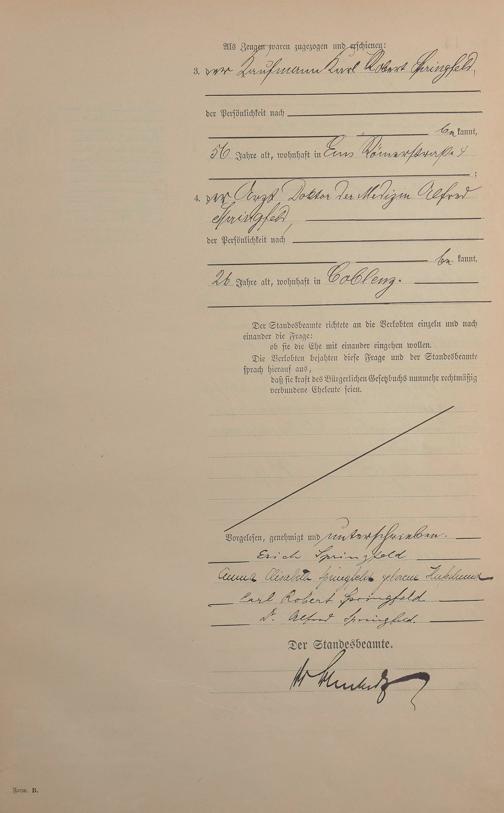 Als Zeugen waren zugezogen und erschienen:
3. der Kaufmann Karl Robert Springfeld,
der Persönlichkeit nach
bekannt,
56 Jahre alt, wohnhaft in Ems Römerstraße 4
;
4. der Arzt, Doktor der Medizin Alfred
Springfeld,
der Persönlichkeit nach
bekannt,
26 Jahre alt, wohnhaft in Coblenz.
Der Standesbeamte richtete an die Verlobten einzeln und nach
einander die Frage:
ob sie die Ehe mit einander eingehen wollen.
Die Verlobten bejahten diese Frage und der Standesbeamte
sprach hierauf aus,
daß sie kraft des Bürgerlichen Gesetzbuchs nunmehr rechtmäßig
verbundene Eheleute seien.
Vorgelesen, genehmigt und unterschrieben.
Erich Springfeld
Anna Elisabeth Springfeld geborene
Carl Robert Springfeld
Dr. Alfred Springfeld.
Der Standesbeamte.
Form. B.